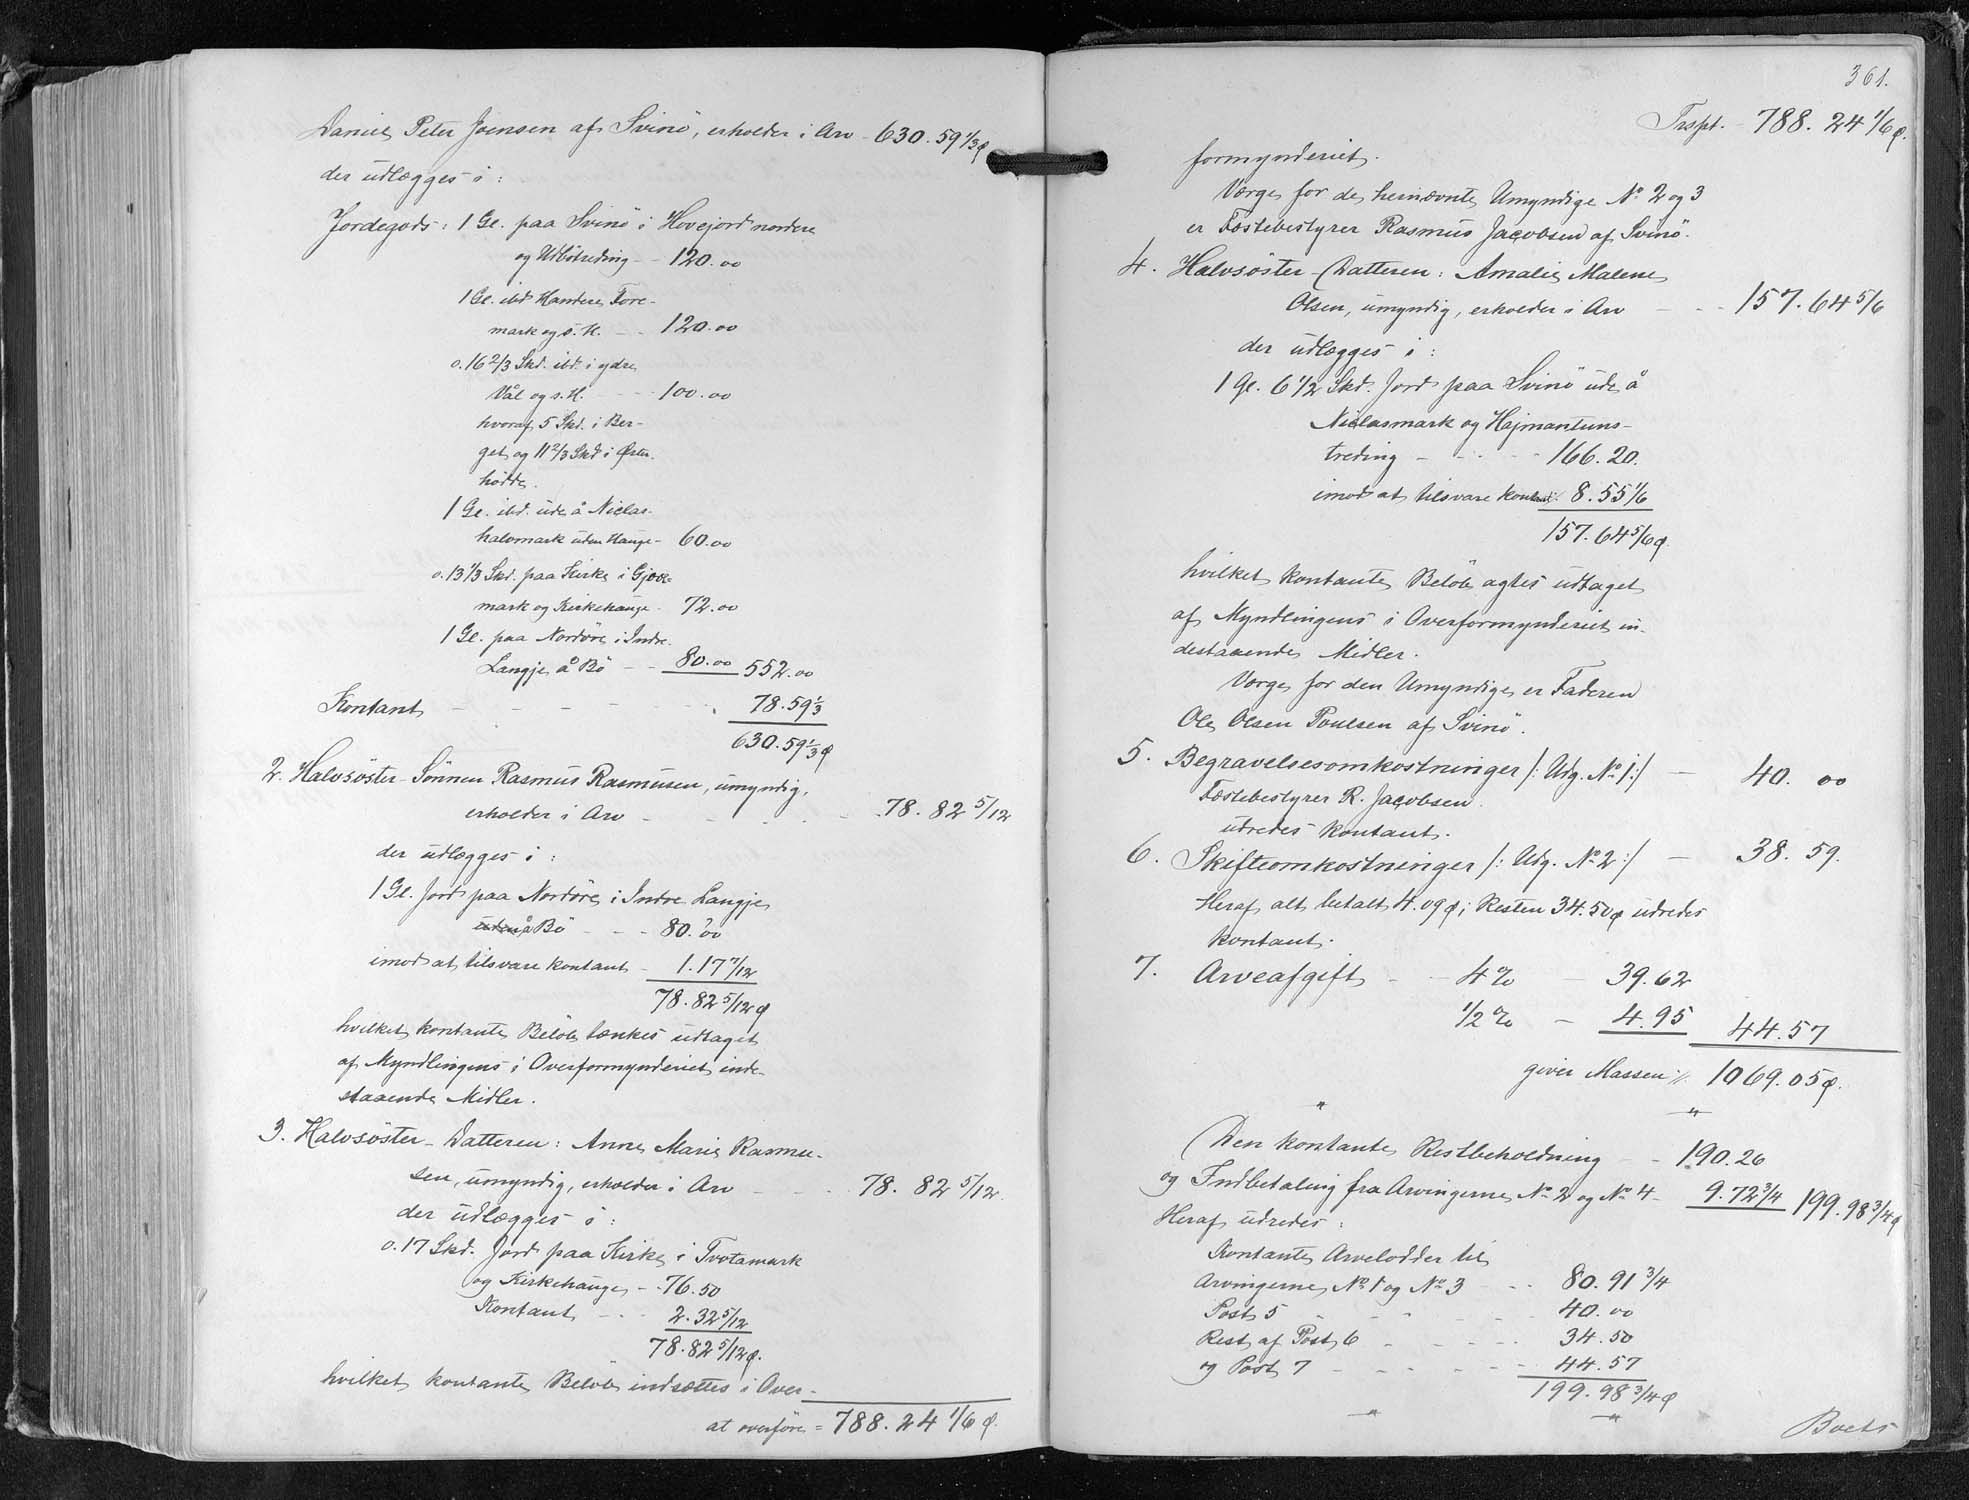 Daniel Peter Joensen af Svinö, erholder i Arv - 630.59 1/3 ø
der udlægges i:
Jordegods: 1 Gl. paa Svinö i Hovejord nordere
og Utbötreding - - 120.00
1 Gl. ibd Handere Fore-
mark og s. H. - - 120.00
o. 16 2/3 Skd. ibd. i ydre
Vål og s. H. - - - 100.00
hvoraf 5 Skd. i Ber-
get og 11 2/3 Skd i Öster-
hödde.
1 Gl. ibd. ude å Niclas-
halvmark uden Hauge - 60.00
o. 13 1/3 Skd. paa Kirke i
mark og Kirkehauge - 72.00
1 Gl. paa Nordöre i Indre
Langje å Bö - - 80.00 552.00
Kontant - - - - - - 78.59 1/3
630.59 1/3 ø
2. Halvsöster-Sönnen Rasmus Rasmusen, umyndig,
erholder i Arv - - - - - 78. 82 5/12
der udlægges i:
1 Gl. Jord paa Nordöre i Indre Langje
å Bö - - - 80.00
imod at tilsvare kontant - 1.17 7/12
78.82 5/12 ø
hvilket kontante Belöb tænkes udtaget
af Myndlingens i Overformynderiet inde-
staaende Midler.
3. Halvsöster-Datteren: Anne Marie Rasmu-
sen, umyndig, erholder i Arv - - - 78. 82 5/12.
der udlægges i:
o. 17 Skd. Jord paa Kirke i Trotamark
og Kirkehauge - - 76.50
Kontant - - - 2.32 5/12
78.82 5/12 ø.
hvilket kontante Belöb indsættes i Over-
at overföre = 788.24 1/6 ø.
361.
Trspt. - 788. 24 1/6 ø.
formynderiet.
Værge for de hernævnte Umyndige No 2 og 3
er Fæstebestyrer Rasmus Jacobsen af Svinö.
4. Halvsöster-Datteren: Amalie Malene
Olsen, umyndig, erholder i Arv - - - 157. 64 5/6
der udlægges i:
1 Gl. 6 1/2 Skd. Jord paa Svinö ude å
Niclasmark og Hejmantuns-
treding - - - - - 166.20.
imod at tilsvare kontant 8.55 1/6
157.64 5/6 ø.
hvilket kontante Belöb agtes udtaget
af Myndlingens i Overformynderiet in-
destaaende Midler.
Værge for den Umyndige er Faderen
Ole Olsen Poulsen af Svinö.
5. Begravelsesomkostninger /: Udg. No 1:/ - 40. 00
Fæstebestyrer R. Jacobsen.
udredes kontant.
6. Skifteomkostninger /: Udg. No 2:/ - 38. 59.
Heraf alt betalt 4.09 ø; Resten 34.50 ø udredes
kontant.
7. Arveafgift - - 4% - 39.62
1/2% - 4.95 44.57
giver Massen: 1069.05 ø.
" "
Den kontante Restbeholdning - - 190.26
og Indbetaling fra Arvingerne No 2 og No 4 - 9.72 3/4 199.98 3/4 ø
Heraf udredes:
Kontante Arvelodder til
Arvingerne No 1 og No 3 - - 80.91 3/4
Post 5 - - - - - 40.00
Rest af Post 6 - - - - - 34.50
og Post 7 - - - - - - 44.57
199.98 3/4 ø
" "
Boets